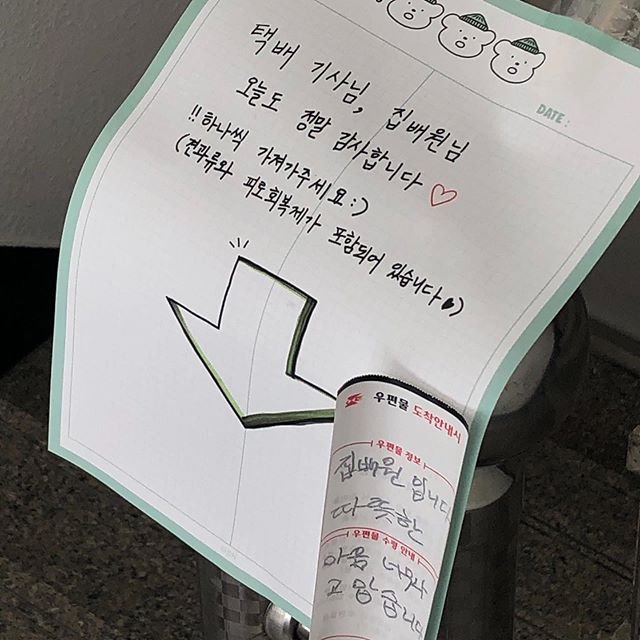 DATE :
택배 기사님, 집배원님
오늘도 정말 감사합니다 ♡
!! 하나씩 가져가주세요 :)
(견과류와 피로회복제가 포함되어 있습니다♥)
우편물 도착안내서
우편물 정보
집배원 입니다
따뜻한
우편물 수령 안내
마음 너무
고맙습니다